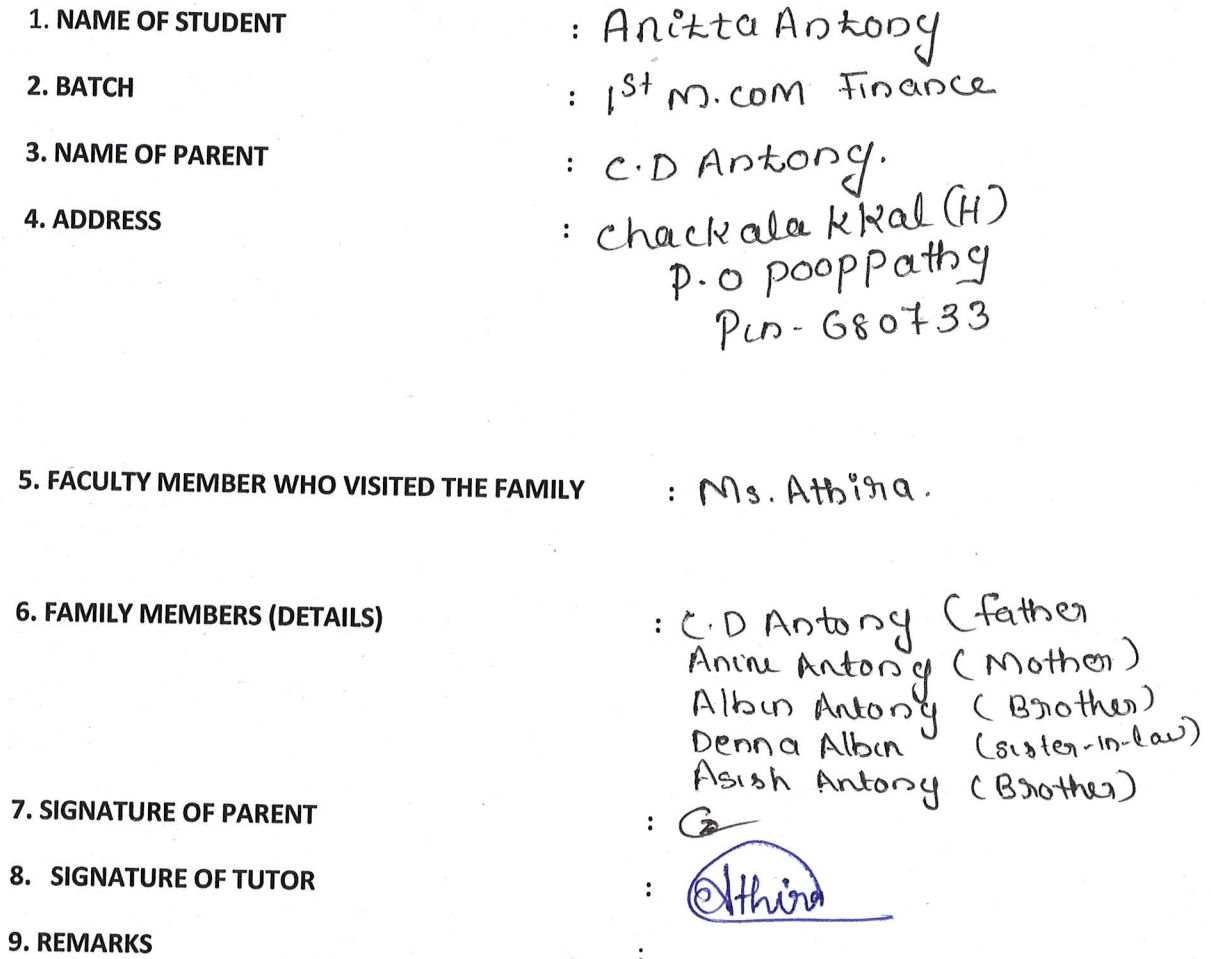 1. NAME OF STUDENT : Anitta Antony
2. BATCH : 1st M.com Finance
3. NAME OF PARENT : C.D Antony.
4. ADDRESS : Chackalakkal (H)
P.O pooppathy
Pin - 680733
5. FACULTY MEMBER WHO VISITED THE FAMILY : Ms. Athira.
6. FAMILY MEMBERS (DETAILS) : C.D Antony (father
Anine Antony (Mother)
Albin Antony (Brother)
Denna Albin (sister-in-law)
Asish Antony (Brother)
7. SIGNATURE OF PARENT :
8. SIGNATURE OF TUTOR : Athira
9. REMARKS :